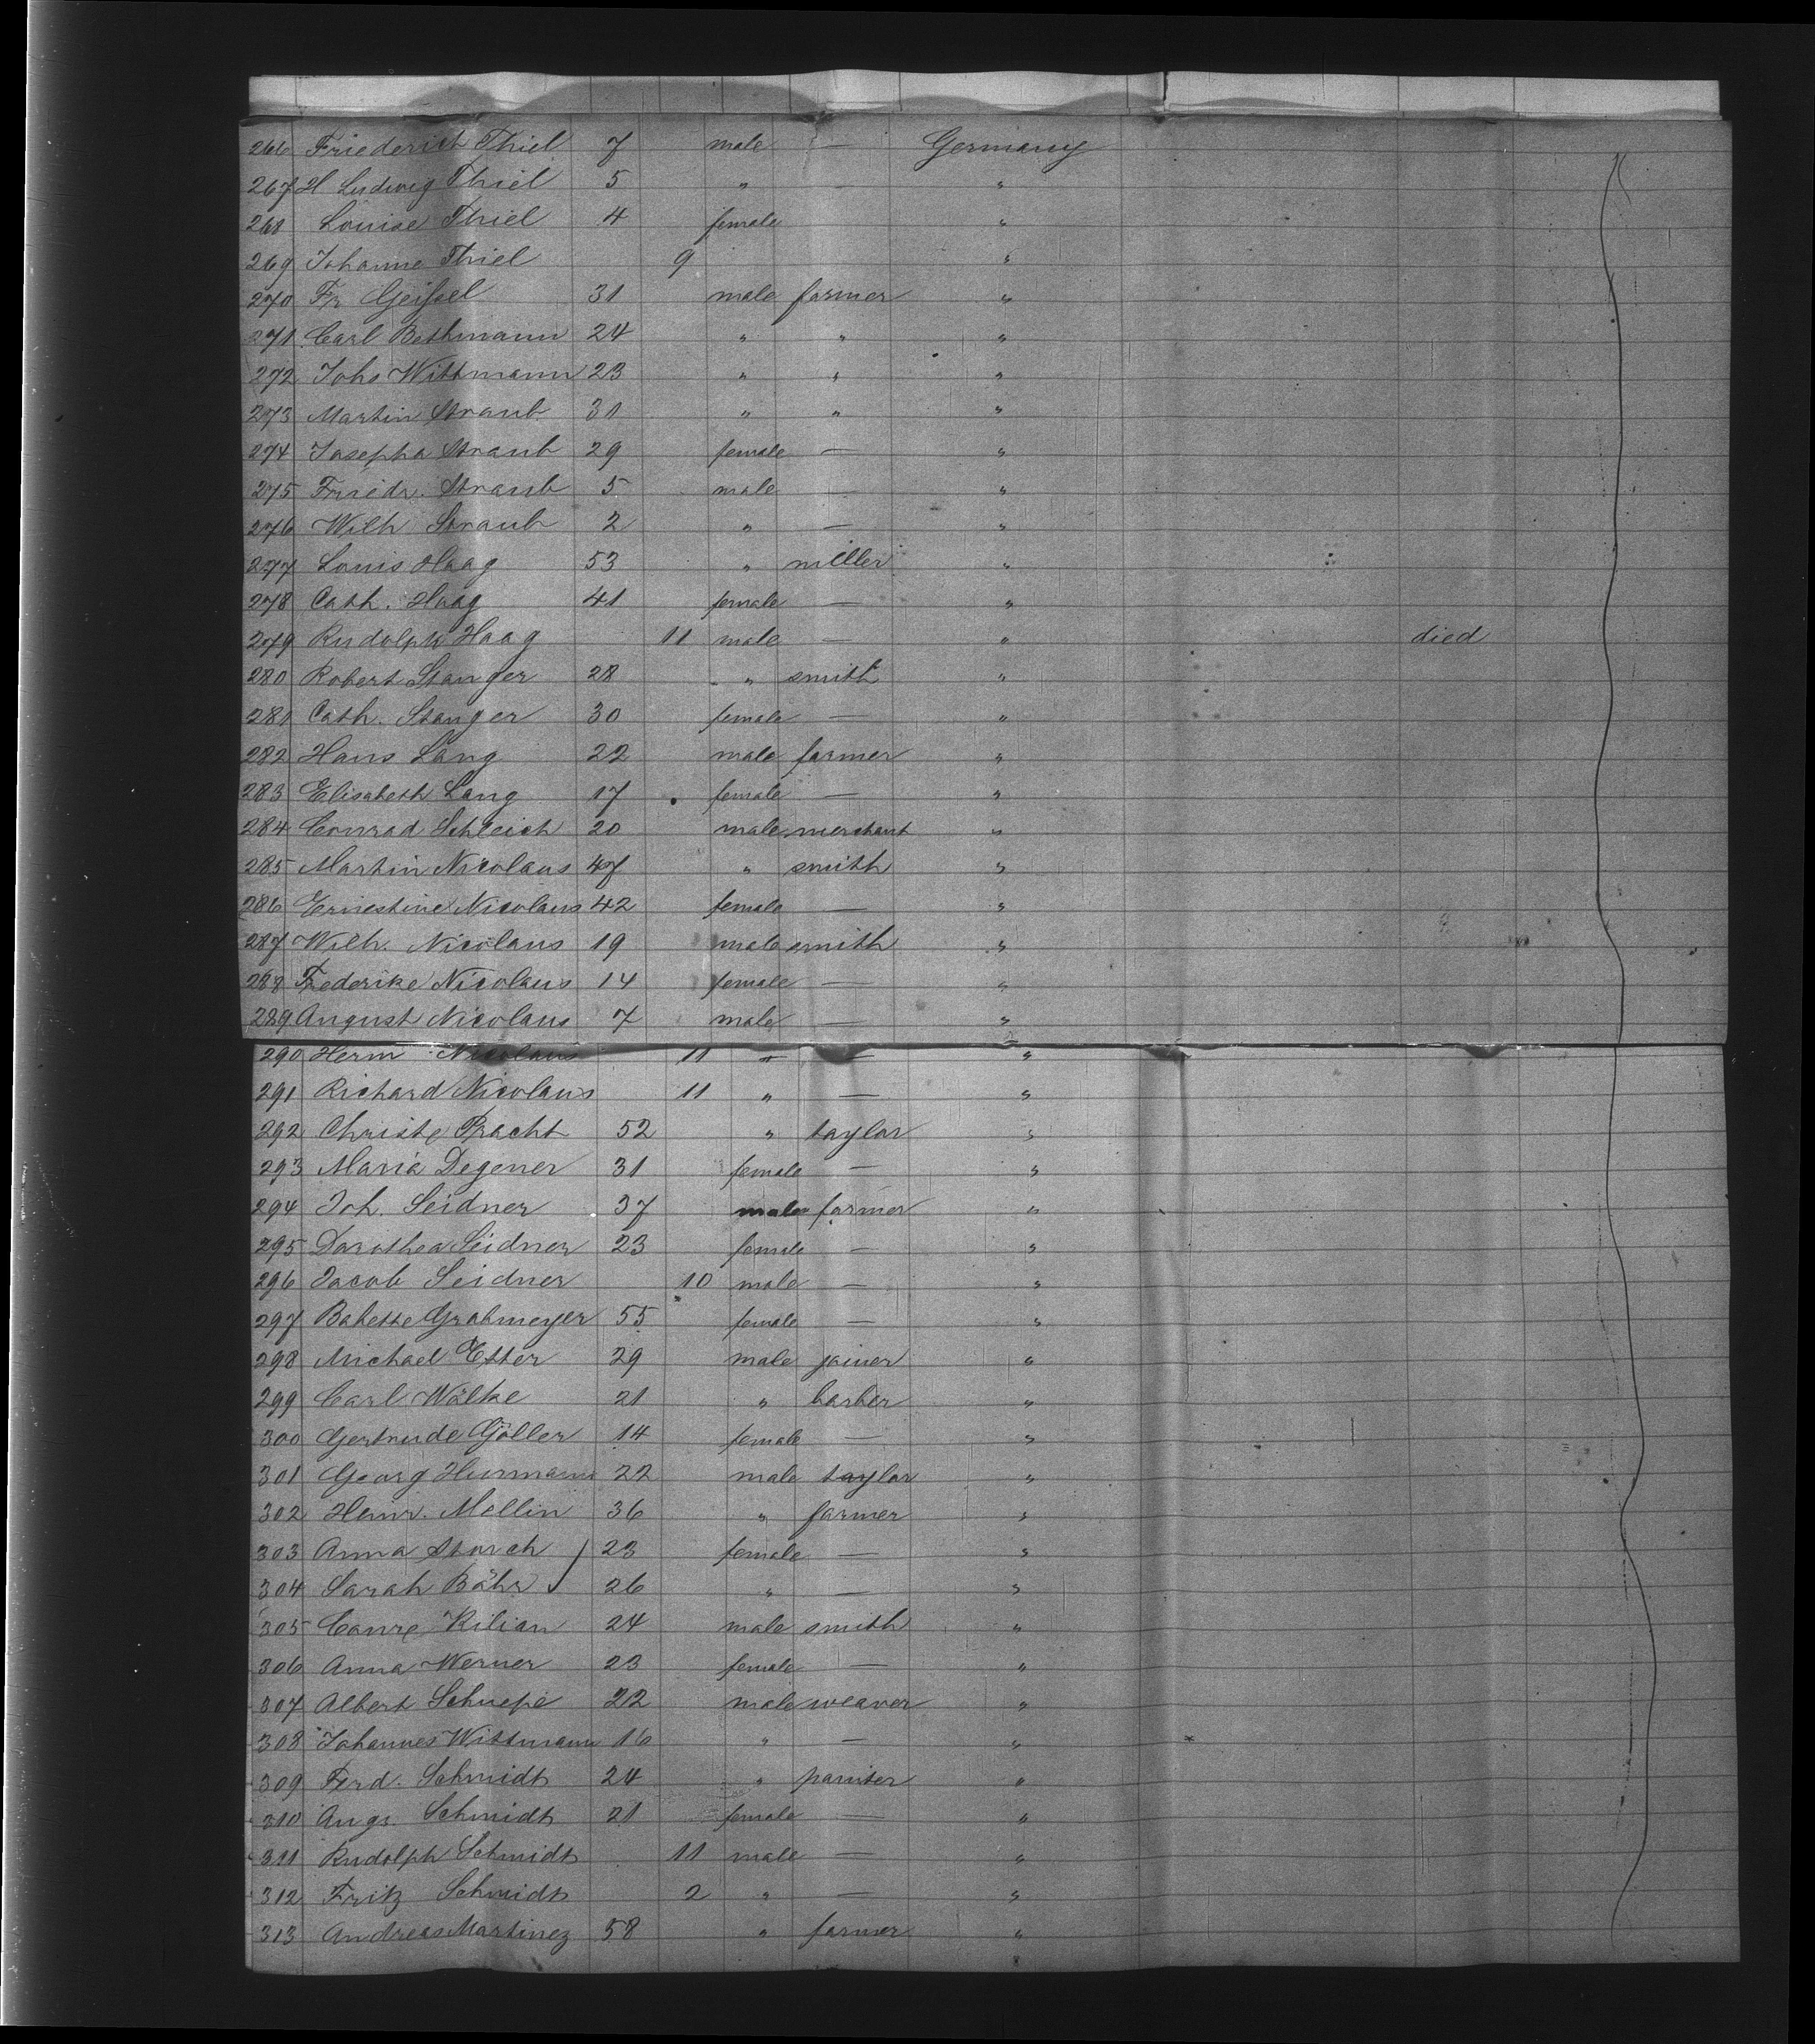 266 Friederich Thiel 7 male — Germany
267 H Ludwig Thiel 5 " — "
268 Louise Thiel 4 female "
269 Johanne Thiel 9 "
270 Fr Geissel 31 male farmer "
271 Carl Bethmann 24 " " "
272 Johs Wittmann 23 " " "
273 Martin Straub 31 " " "
274 Josepha Straub 29 female — "
275 Friedr. Straub 5 male — "
276 Wilh Straub 2 " — "
277 Louis Haag 53 " miller "
278 Cath. Haag 41 female — "
279 Rudolph Haag 11 male — " died
280 Robert Stanger 28 " smith "
281 Cath. Stanger 30 female — "
282 Hans Lang 22 male farmer "
283 Elisabeth Lang 17 female — "
284 Conrad Schleich 20 male merchant "
285 Martin Nicolaus 47 " smith "
286 Ernestine Nicolaus 42 female — "
287 Wilh. Nicolaus 19 male smith "
288 Frederike Nicolaus 14 female — "
289 August Nicolaus 7 male — "
290 Herm Nicolaus 11 " — "
291 Richard Nicolaus 11 " — "
292 Christe Pracht 52 " taylor "
293 Maria Degener 31 female — "
294 Joh. Seidner 37 male farmer "
295 Dorothea Seidner 23 female — "
296 Jacob Seidner 10 male — "
297 Babette Grabmeyer 55 female — "
298 Michael Etter 29 male joiner "
299 Carl Wölke 21 " barber "
300 Gertrude Göller 14 female — "
301 Georg Hurmann 22 male taylor "
302 Heinr. Mellin 36 " farmer "
303 Anna Storch 23 female — "
304 Sarah Bähr 26 " — "
305 Kilian 24 male smith "
306 Anna Werner 23 female — "
307 Albert Schnepe 22 male weaver "
308 Johannes Wittmann 16 " — "
309 Ferd. Schmidt 24 " painter "
310 Augs. Schmidt 21 female — "
311 Rudolph Schmidt 11 male — "
312 Fritz Schmidt 2 " — "
313 Andreas Martinez 58 " farmer "